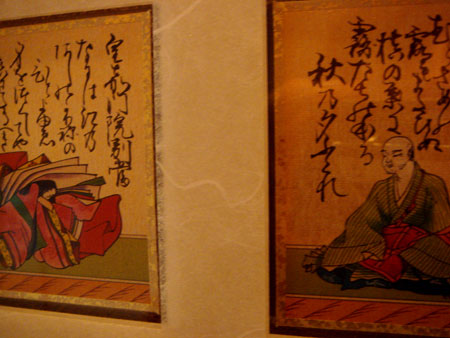 むらさめの
露もまだひぬ
槙の葉に
霧たちのぼる
秋乃夕ぐれ
皇嘉門院別當
なには江乃
あしのかりねの
ひとよゆゑ
身をつくしてや